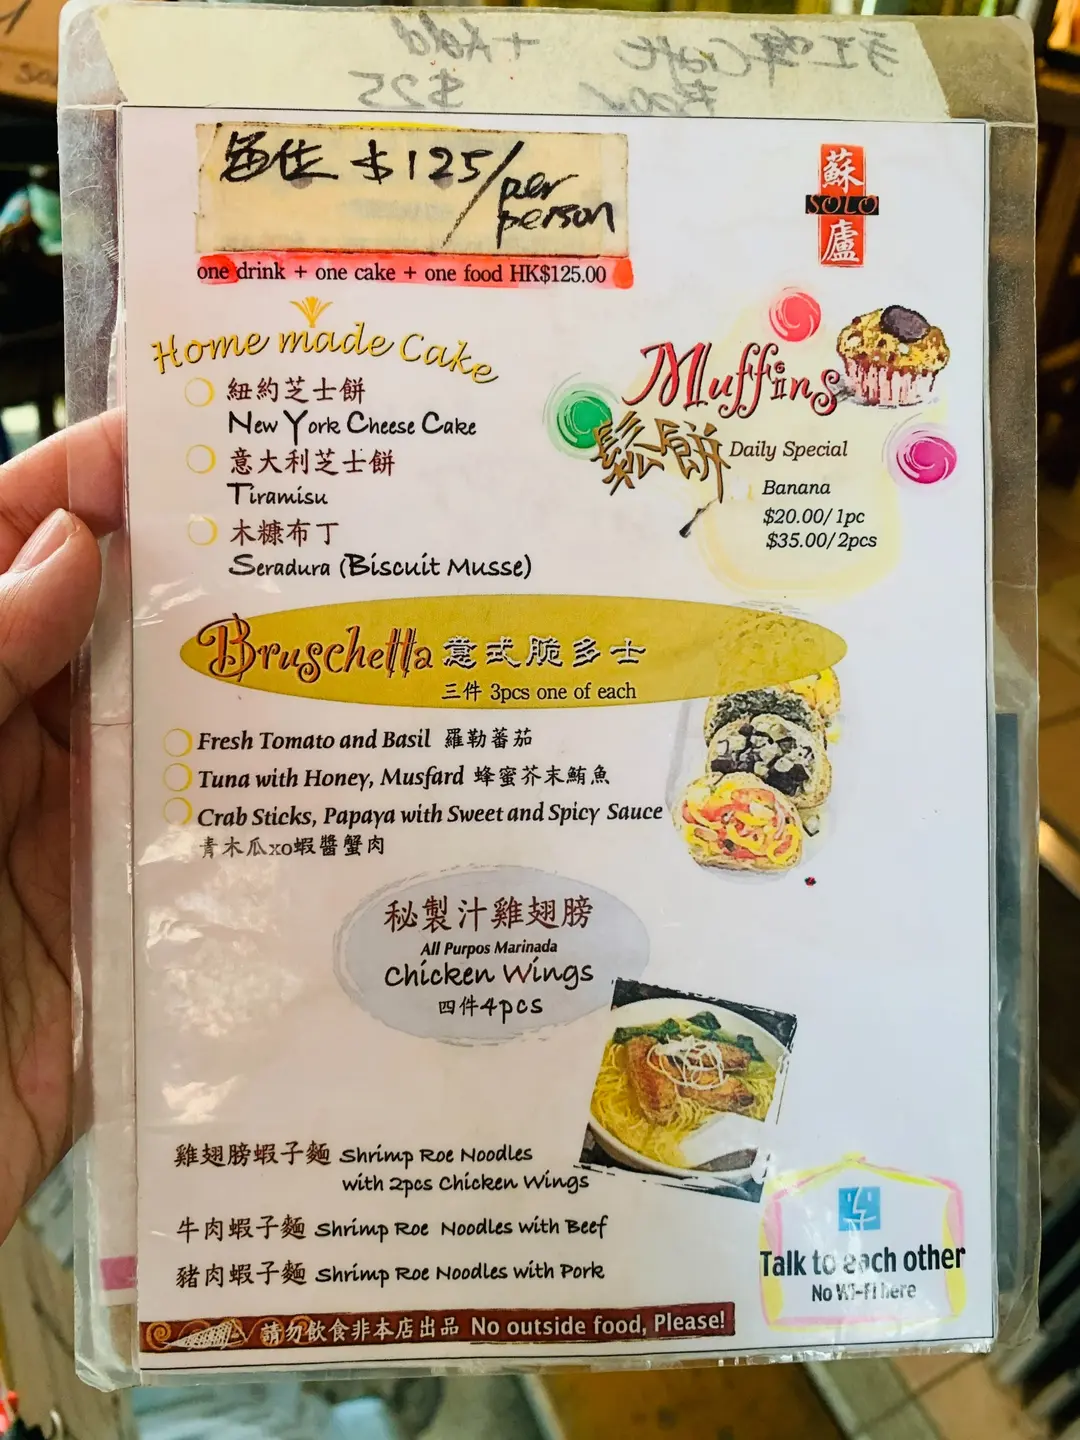 每位 $125/per person
蘇
SOLO
廬
one drink + one cake + one food HK$125.00
Home made Cake
紐約芝士餅
New York Cheese Cake
意大利芝士餅
Tiramisu
木糠布丁
Seradura (Biscuit Musse)
Muffins
鬆餅 Daily Special
Banana
$20.00/1pc
$35.00/2pcs
Bruschetta 意式脆多士
三件 3pcs one of each
Fresh Tomato and Basil 羅勒蕃茄
Tuna with Honey, Musfard 蜂蜜芥末鮪魚
Crab Sticks, Papaya with Sweet and Spicy Sauce
青木瓜xo蝦醬蟹肉
秘製汁雞翅膀
All Purpos Marinada
Chicken Wings
四件4pcs
雞翅膀蝦子麵 Shrimp Roe Noodles
with 2pcs Chicken Wings
牛肉蝦子麵 Shrimp Roe Noodles with Beef
豬肉蝦子麵 Shrimp Roe Noodles with Pork
Talk to each other
No Wi-Fi here
請勿飲食非本店出品 No outside food, Please!